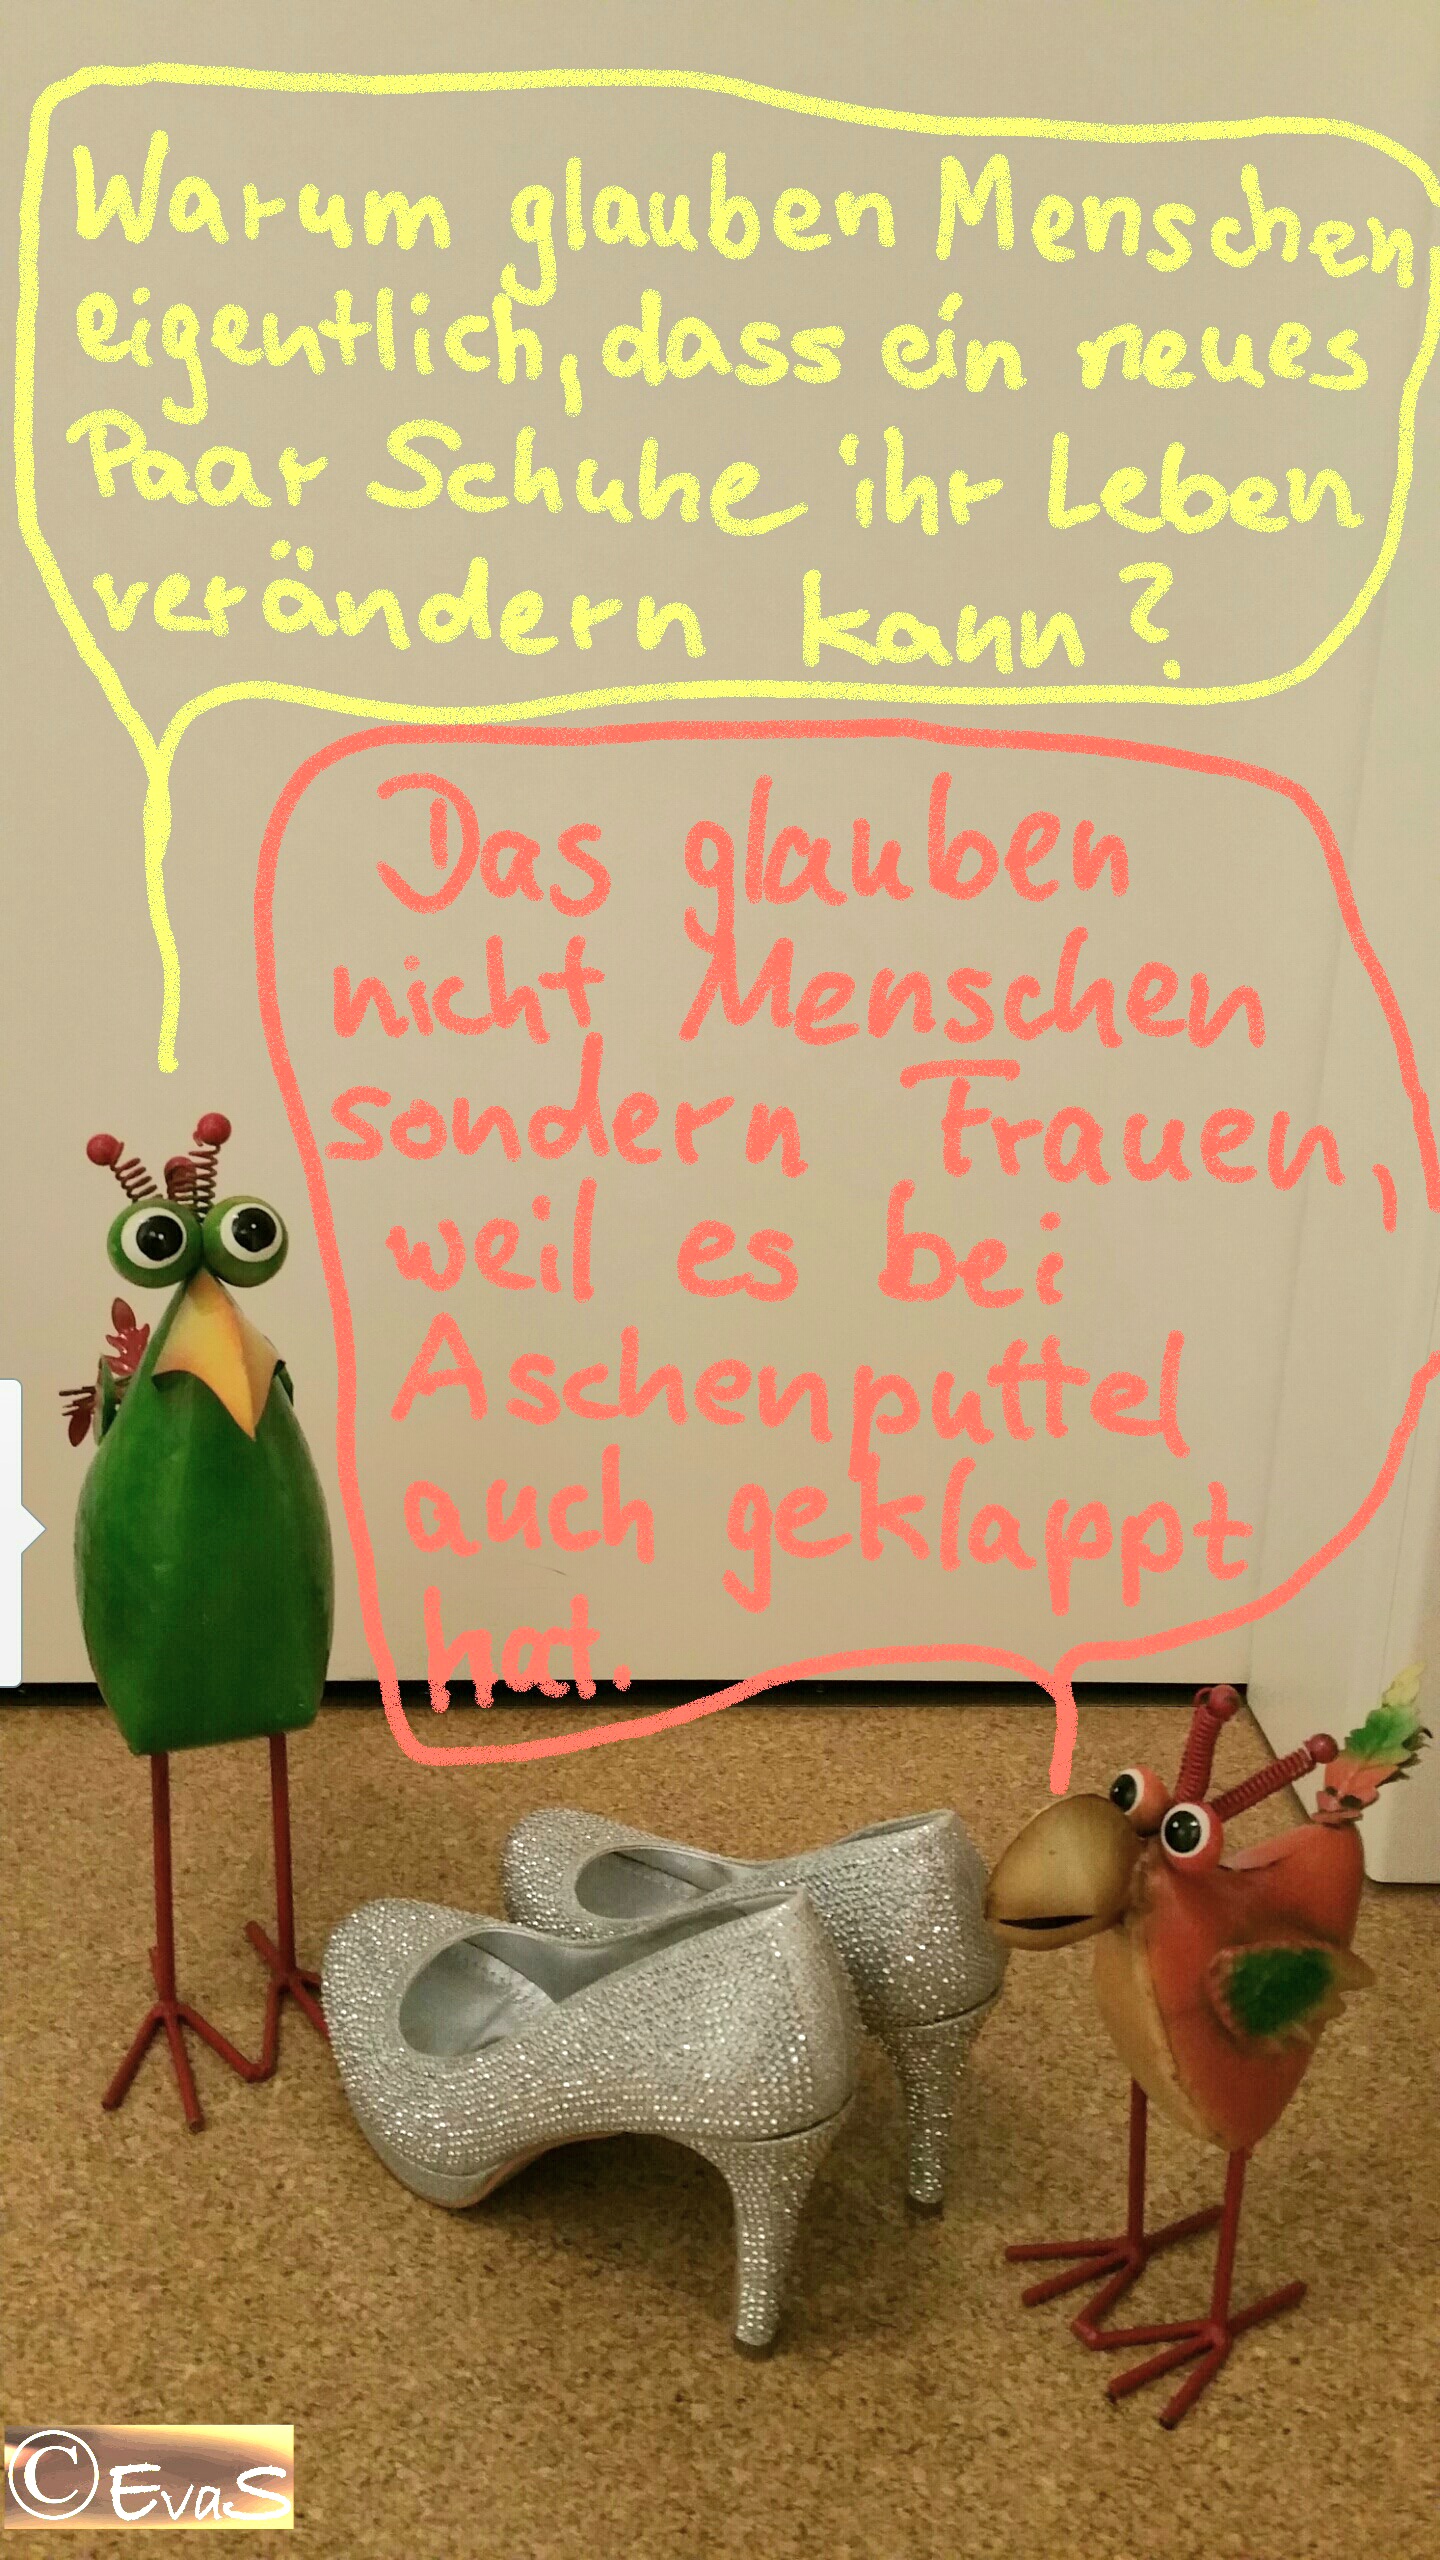 Warum glauben Menschen
eigentlich, dass ein neues
Paar Schuhe ihr Leben
verändern kann?
Das glauben
nicht Menschen
sondern Frauen,
weil es bei
Aschenputtel
auch geklappt
hat.
© EvaS